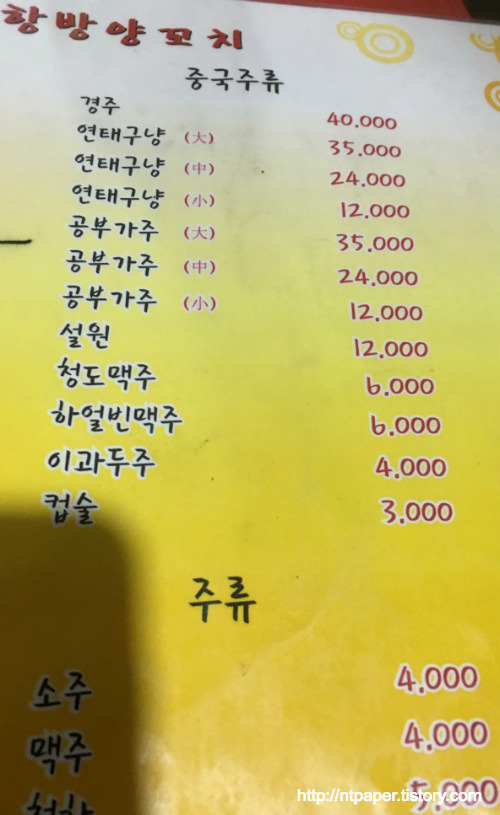 항방양꼬치
중국주류
경주 40.000
연태구냥 (大) 35.000
연태구냥 (中) 24.000
연태구냥 (小) 12.000
공부가주 (大) 35.000
공부가주 (中) 24.000
공부가주 (小) 12.000
설원 12.000
청도맥주 6.000
하얼빈맥주 6.000
이과두주 4.000
컵술 3.000
주류
소주 4.000
맥주 4.000
5.000
http://ntpaper.tistory.com/